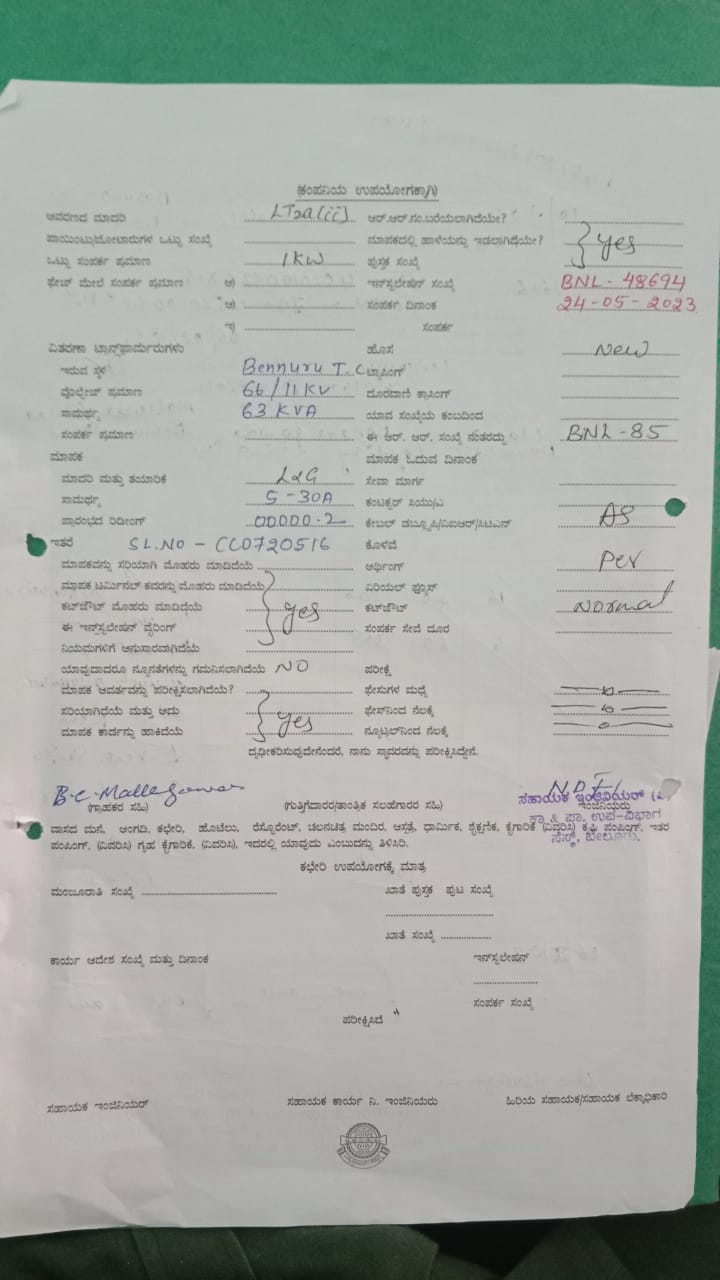 (ಕಂಪನಿಯ ಉಪಯೋಗಕ್ಕಾಗಿ)
ಆವರಣದ ಮಾದರಿ LT2a(ii) ಆರ್.ಆರ್.ನಂ.ಬರೆಯಲಾಗಿದೆಯೇ?
ಪಾಯಿಂಟು/ಮೋಟಾರುಗಳ ಒಟ್ಟು ಸಂಖ್ಯೆ ಮಾಪಕದಲ್ಲಿ ಹಾಳೆಯನ್ನು ಇಡಲಾಗಿದೆಯೇ? yes
ಒಟ್ಟು ಸಂಪರ್ಕ ಪ್ರಮಾಣ 1KW ಪುಸ್ತಕ ಸಂಖ್ಯೆ
ಫೇಜ್ ಮೇಲೆ ಸಂಪರ್ಕ ಪ್ರಮಾಣ ಅ) ಇನ್‌ಸ್ಟಲೇಷನ್ ಸಂಖ್ಯೆ BNL - 48694
ಆ) ಸಂಪರ್ಕ ದಿನಾಂಕ 24-05-2023
ಇ) ಸಂಪರ್ಕ
ವಿತರಣಾ ಟ್ರಾನ್ಸ್‌ಫಾರ್ಮರುಗಳು ಹೊಸ New
ಇರುವ ಸ್ಥಳ Bennuru T.C ಟ್ರಾಸಿಂಗ್
ವೊಲ್ಟೇಜ್ ಪ್ರಮಾಣ 66/11KV ದೂರವಾಣಿ ಕ್ರಾಸಿಂಗ್
ಸಾಮರ್ಥ್ಯ 63 KVA ಯಾವ ಸಂಖ್ಯೆಯ ಕಂಬದಿಂದ
ಸಂಪರ್ಕ ಪ್ರಮಾಣ ಈ ಆರ್. ಆರ್. ಸಂಖ್ಯೆ ನಂತರದ್ದು BNL-85
ಮಾಪಕ ಮಾಪಕ ಓದುವ ದಿನಾಂಕ
ಮಾದರಿ ಮತ್ತು ತಯಾರಿಕೆ L&G ಸೇವಾ ಮಾರ್ಗ
ಸಾಮರ್ಥ್ಯ 5-30A ಕಂಟಕ್ಟರ್ ಸಿಯು/ಎ
ಪ್ರಾರಂಭದ ರಿಡೀಂಗ್ 00000.2 ಕೇಬಲ್ ಡಬ್ಲ್ಯೂಪಿ/ವಿಐಆರ್/ಸಿಟಿಎಸ್ AS
ಇತರೆ SL.NO - CC0720516 ಕೊಳವೆ
ಮಾಪಕವನ್ನು ಸರಿಯಾಗಿ ಮೊಹರು ಮಾಡಿದೆಯೆ ಆರ್ಥಿಂಗ್ Per
ಮಾಪಕ ಟರ್ಮಿನಲ್ ಕವರನ್ನು ಮೊಹರು ಮಾಡಿದೆಯೆ ಏರಿಯಲ್ ಫ್ಯೂಸ್
ಕಟ್‌ಔಟ್ ಮೊಹರು ಮಾಡಿದೆಯೆ yes ಕಟ್‌ಔಟ್ Normal
ಈ ಇನ್‌ಸ್ಟಲೇಷನ್ ವೈರಿಂಗ್ ಸಂಪರ್ಕ ಸೇವೆ ದೂರ
ನಿಯಮಗಳಿಗೆ ಅನುಸಾರವಾಗಿದೆಯೆ
ಯಾವುದಾದರೂ ನ್ಯೂನತೆಗಳನ್ನು ಗಮನಿಸಲಾಗಿದೆಯೆ NO ಪರೀಕ್ಷೆ
ಮಾಪಕ ಆವರ್ತವನ್ನು ಪರೀಕ್ಷಿಸಲಾಗಿದೆಯೆ? ಫೇಸುಗಳ ಮಧ್ಯೆ
ಸರಿಯಾಗಿದೆಯೆ ಮತ್ತು ಅದು ಫೇಸ್‌ನಿಂದ ನೆಲಕ್ಕೆ
ಮಾಪಕ ಕಾರ್ಡನ್ನು ಹಾಕಿದೆಯೆ yes ನ್ಯೂಟ್ರಲ್‌ನಿಂದ ನೆಲಕ್ಕೆ
ದೃಢೀಕರಿಸುವುದೇನೆಂದರೆ, ನಾನು ಸ್ಥಾವರವನ್ನು ಪರೀಕ್ಷಿಸಿದ್ದೇನೆ.
(ಗ್ರಾಹಕರ ಸಹಿ) (ಗುತ್ತಿಗೆದಾರರ/ತಾಂತ್ರಿಕ ಸಲಹೆಗಾರರ ಸಹಿ) ಇಂಜಿನಿಯರು
ಸಹಾಯಕ ಇಂಜಿನಿಯರ್ (ವಿ)
ಕಾ & ಪಾ. ಉಪ-ವಿಭಾಗ
ಸೆಸ್ಕ್, ಬೇಲೂರು.
ವಾಸದ ಮನೆ, ಅಂಗಡಿ, ಕಛೇರಿ, ಹೊಟೆಲು, ರೆಸ್ಟೋರೆಂಟ್, ಚಲನಚಿತ್ರ ಮಂದಿರ, ಆಸ್ಪತ್ರೆ, ಧಾರ್ಮಿಕ, ಶೈಕ್ಷಣಿಕ, ಕೈಗಾರಿಕೆ (ವಿವರಿಸಿ) ಕೃಷಿ ಪಂಪಿಂಗ್, ಇತರ
ಪಂಪಿಂಗ್, (ವಿವರಿಸಿ) ಗೃಹ ಕೈಗಾರಿಕೆ, (ವಿವರಿಸಿ), ಇದರಲ್ಲಿ ಯಾವುದು ಎಂಬುದನ್ನು ತಿಳಿಸಿರಿ.
ಕಛೇರಿ ಉಪಯೋಗಕ್ಕೆ ಮಾತ್ರ
ಮಂಜೂರಾತಿ ಸಂಖ್ಯೆ ಖಾತೆ ಪುಸ್ತಕ ಪುಟ ಸಂಖ್ಯೆ
ಖಾತೆ ಸಂಖ್ಯೆ
ಕಾರ್ಯ ಆದೇಶ ಸಂಖ್ಯೆ ಮತ್ತು ದಿನಾಂಕ ಇನ್‌ಸ್ಟಲೇಷನ್
ಸಂಪರ್ಕ ಸಂಖ್ಯೆ
ಪರೀಕ್ಷಿಸಿದೆ
ಸಹಾಯಕ ಇಂಜಿನಿಯರ್ ಸಹಾಯಕ ಕಾರ್ಯ ನಿ. ಇಂಜಿನಿಯರು ಹಿರಿಯ ಸಹಾಯಕ/ಸಹಾಯಕ ಲೆಕ್ಕಾಧಿಕಾರಿ